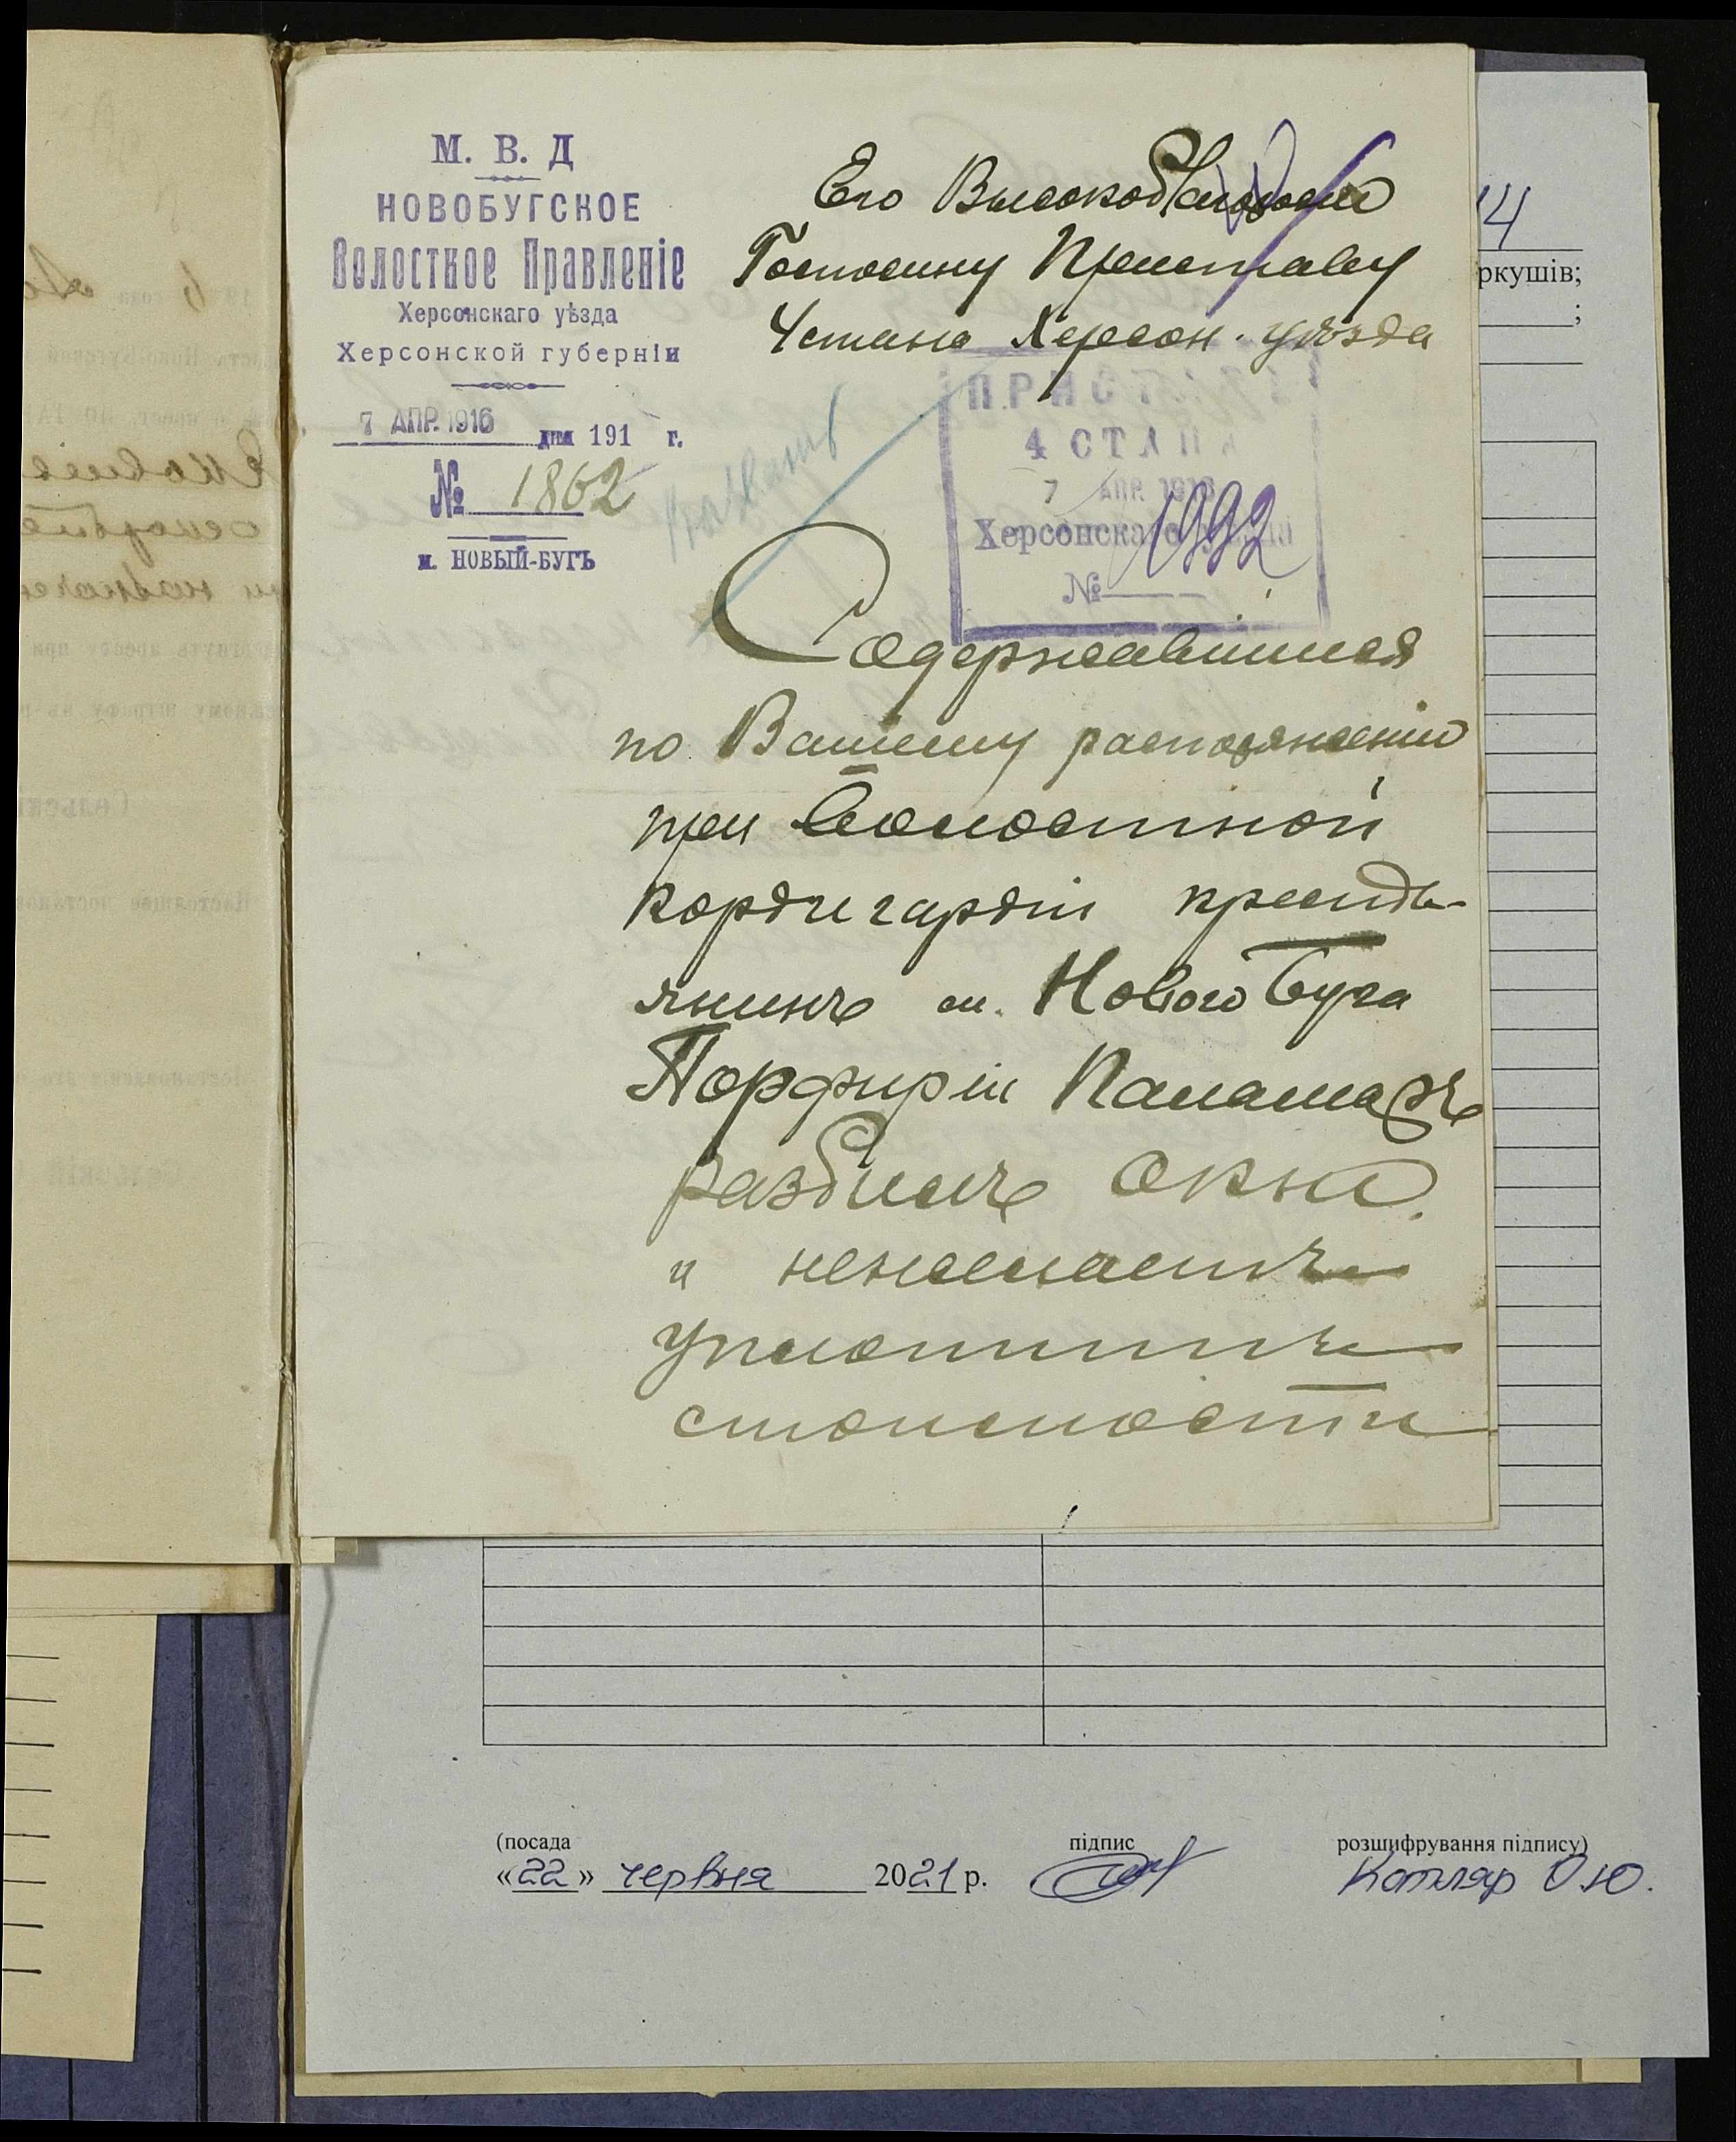 М. В. Д
НОВОБУГСКОЕ
Волостное Правленіе
Херсонскаго уѣзда
Херсонской губерніи
7 АПР. 1916 дня 191 г.
№ 1862
м. НОВЫЙ-БУГЪ
Его Высокоблагородію
Господину Приставу
4 стана Херсон. уѣзда
ПРИСТАВЪ
4 СТАНА
7 АПР. 1916
Херсонскаго уѣзда
№ 1992
Содержавшійся
по Вашему распоряженію
при Волостной
кордегардіи крестья-
янинъ м. Новаго Буга
Порфирій Паламаръ
разбилъ окно
и нежелаетъ
уплотить
стоимости
14
ркушів;
;
(посада
підпис
розшифрування підпису)
«22» червня 2021 р.
Котляр О.Ю.